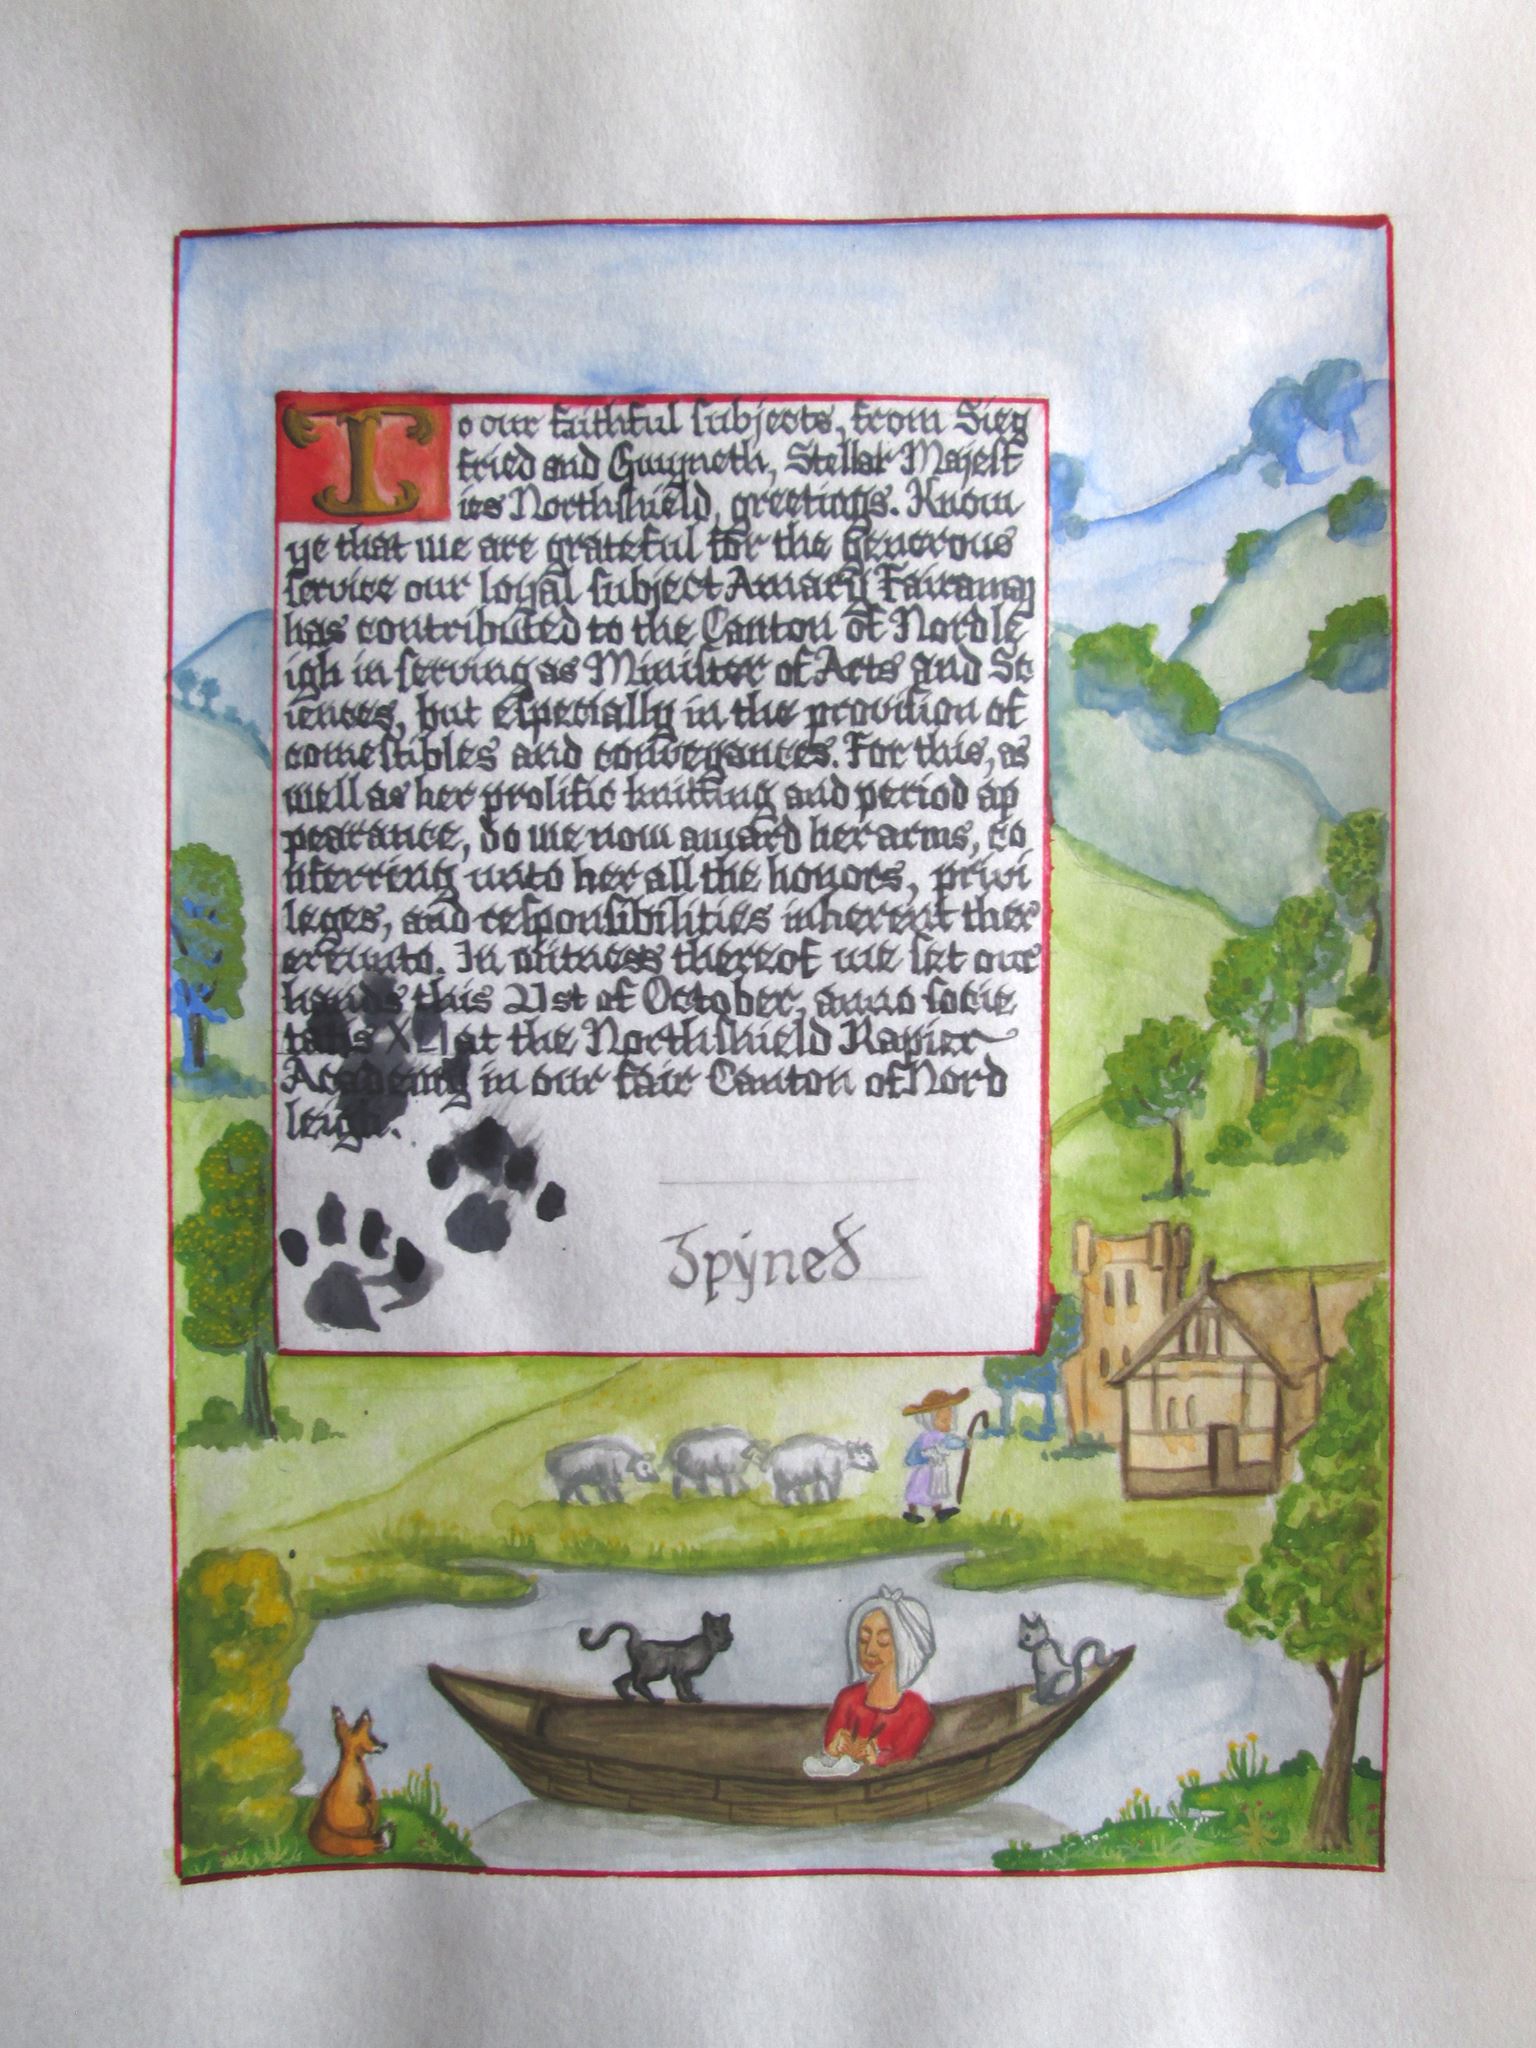 To our faithful subjects, from Sieg
fried and Gwyneth, Stellar Majest
ies Northshield, greetings. Know
ye that we are grateful for the generous
service our loyal subject Amary Fairamay
has contributed to the Canton of Nordle
igh in serving as Minister of Arts and Sc
iences, but especially in the provision of
comestibles and conveyances. For this, as
well as her prolific knitting and period ap
pearance, do we now award her arms, co
nferring unto her all the honors, privi
leges, and responsibilities inherent ther
eunto. In witness thereof we set our
hands this 21st of October, anno socie
tatis XLI at the Northshield Rapier
Academy in our fair Canton of Nord
leigh.